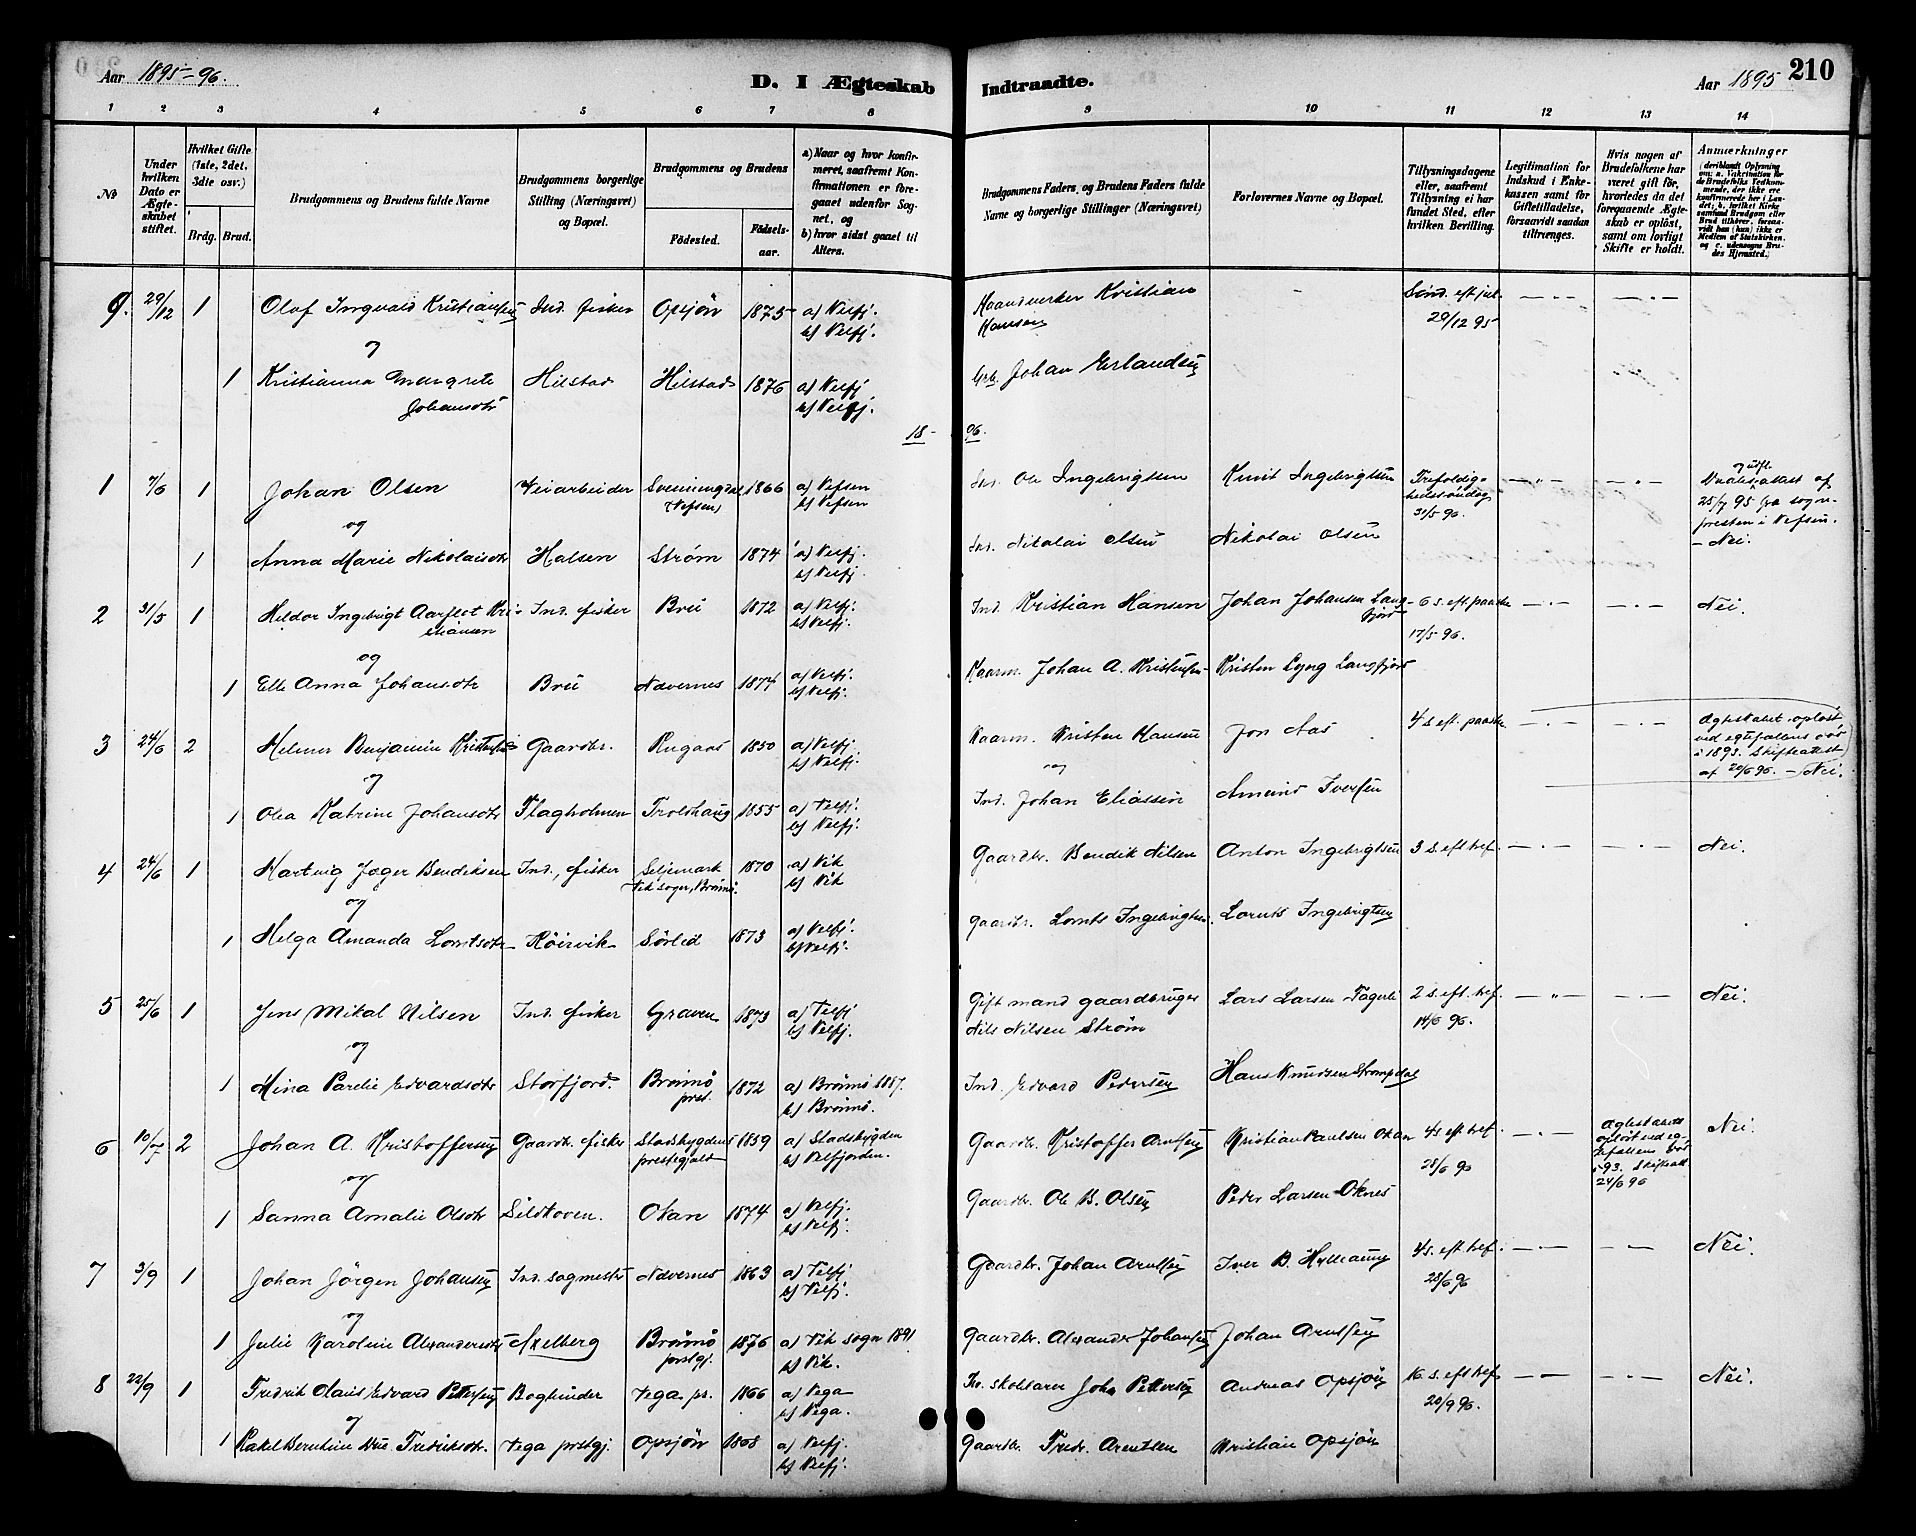 Aar 1895-96.
D. I Ægteskab
Indtraadte.
Aar 1895
210
1 2 3 4 5 6 7 8 9 10 11 12 13 14
No
Under hvilken Dato er Ægteskabet stiftet.
Hvilket Gifte (1ste, 2det, 3die osv.)
Brdg. Brud.
Brudgommens og Brudens fulde Navne
Brudgommens borgerlige Stilling (Næringsvei) og Bopæl.
Brudgommens og Brudens
Fødested.
Fødselsaar.
a) Naar og hvor konfirmeret, saafremt Konfirmationen er foregaaet udenfor Sognet, og
b) hvor sidst gaaet til Alters.
Brudgommens Faders, og Brudens Faders fulde Navne og borgerlige Stillinger (Næringsvei)
Forlovernes Navne og Bopæl.
Tillysningsdagene eller, saafremt Tillysning ei har fundet Sted, efter hvilken Bevilling.
Legitimation for Indskud i Enkekassen samt for Giftetilladelse, forsaavidt saadan tiltrænges.
Hvis nogen af Brudefolkene har været gift før, hvorledes da det foregaaende Ægteskab er opløst, samt om lovligt Skifte er holdt.
Anmærkninger (deriblandt Oplysning om: a. Vakcination for de Brudefolks Vedkommende, der ikke ere konfirmerede her i Landet; b. hvilket Kirkesamfund Brudgom eller Brud tilhører, forsaavidt han (hun) ikke er Medlem af Statskirken, og c. udensogns Brudes Hjemsted.)
9. 29/12 1 Olaf Ingvald Kristiansen Ind. fisker Opsjön 1875 a) Velfj. b) Velfj. Haandverker Kristian Hansen Sind. eft jul. 29/12 95
og
1 Kristianna Margrete Johansdtr Hilstad Hilstad 1876 a) Velfj b) Velfj. Grb. Johan Erlandsen
18-96.
1 7/6 1 Johan Olsen Veiarbeider Svenningdal (Vefsen) 1866 a) Vefsen b) Vefsen Ind. Ole Ingebrigtsen Knut Ingebrigtsen Trefoldighedssöndag 31/5 96. 25/7 95 fra sognepresten i Vefsen. - Nei.
og
1 Anna Marie Nikolaisdtr Halsen Strøm 1874 a) Velfj. b) Velfj. Ind. Nikolai Olsen Nikolai Olsen
2 31/5 1 Heldor Ingebrigt Aarflot Kristiansen Ind. fisker Brei 1872 a) Velfj. b) Velfj. Ind. Kristian Hansen Johan Johansen Langfjord 6 s. eft paaske 17/5 96. Nei.
og
1 Elle Anna Johansdtr Brei Nævernes 1874 a) Velfj. b) Velfj. Kaarm. Johan A. Kristensen Kristen Lyng Langfjord
3 24/6 2 Helmer Benjamin Kristensen Gaardbr. Rugaas 1850 a) Velfj. b) Velfj. Kaarm. Kristen Hansen Jon Aas 4 s. eft. paaske Ægteskabet opløst ved egtefællens död i 1893. Skifteattest af 20/6 96. - Nei.
og
1 Olea Katrine Johansdtr Flagholmen Troldhaug 1855 a) Velfj. b) Velfj. Ind. Johan Eliassen Amund Iversen
4 24/6 1 Hartvig Jager Bendiksen Ind., fisker Seljemark Vik sogn, Brönnö. 1870 a) Vik b) Vik Gaardbr. Bendik Nilsen Anton Ingebrigtsen 3 s. eft tref. Nei.
og
1 Helga Amanda Lorntsdtr Höirvik Sörlid 1873 a) Velfj. b) Velfj. Gaardbr. Lornts Ingebrigtsen. Lornts Ingebrigtsen
5 25/6 1 Jens Mikal Nilsen Ind. fisker Graven 1873 a) Velfj b) Velfj. Gift mand gaardbruger Nils Nilsen Ström Lars Larsen Fagerli 2 s. eft. tref. 14/6 96. Nei.
og
1 Mina Parelie Edvardsdtr Storfjord. Brönnö prst. 1872 a) Brönnö 1887. b) Brönnö. Ind. Edvard Pedersen Hans Knudsen Strompdal
6 10/7 2 Johan A. Kristoffersen Gaardbr. fisker Stadsbygdens prestegjæld 1859 a) Stadsbygden b) Velfjorden. Gaardbr. Kristoffer Arntsen Kristian Paulsen Okan 4 s. eft tref. 28/6 96 Ægteskabet opløst ved egtefællens död 93. Skifteatt. 24/6 96 Nei.
og
1 Sanna Amalie Olsdtr Sildhoven. Okan 1874 a) Velfj. b) Velfj. Gaardbr. Ole B. Olsen Peder Larsen Oknes
7 3/9 1 Johan Jörgen Johansen Ind. sagmester Nævernes 1863 a) Velfj b) Velfj. Gaardbr. Johan Arntsen Iver B. Hylleaung 4 s. eft tref. 28/6 96 Nei.
og
1 Julie Karoline Alexandersdtr Axelberg Brönnö prstgj. 1876 a) Vik sogn 1891 b) Vik. Gaardbr. Alexander Johansen Johan Arntsen
8 22/9 1 Fredrik Claus Edvard Pettersen Bogbinder Vega pr. 1866 a) Vega b) Vega. Fhv. skolelærer Joh. Pettersen Andreas Opsjön 16 s. eft tref 20/9 96. Nei.
og
1 Rakel Berntine Fredriksdtr. Vega prestgj. Opsjön 1868 a) Velfj. b) Velfj. Gaardbr. Fredr. Arentsen Kristian Opsjön